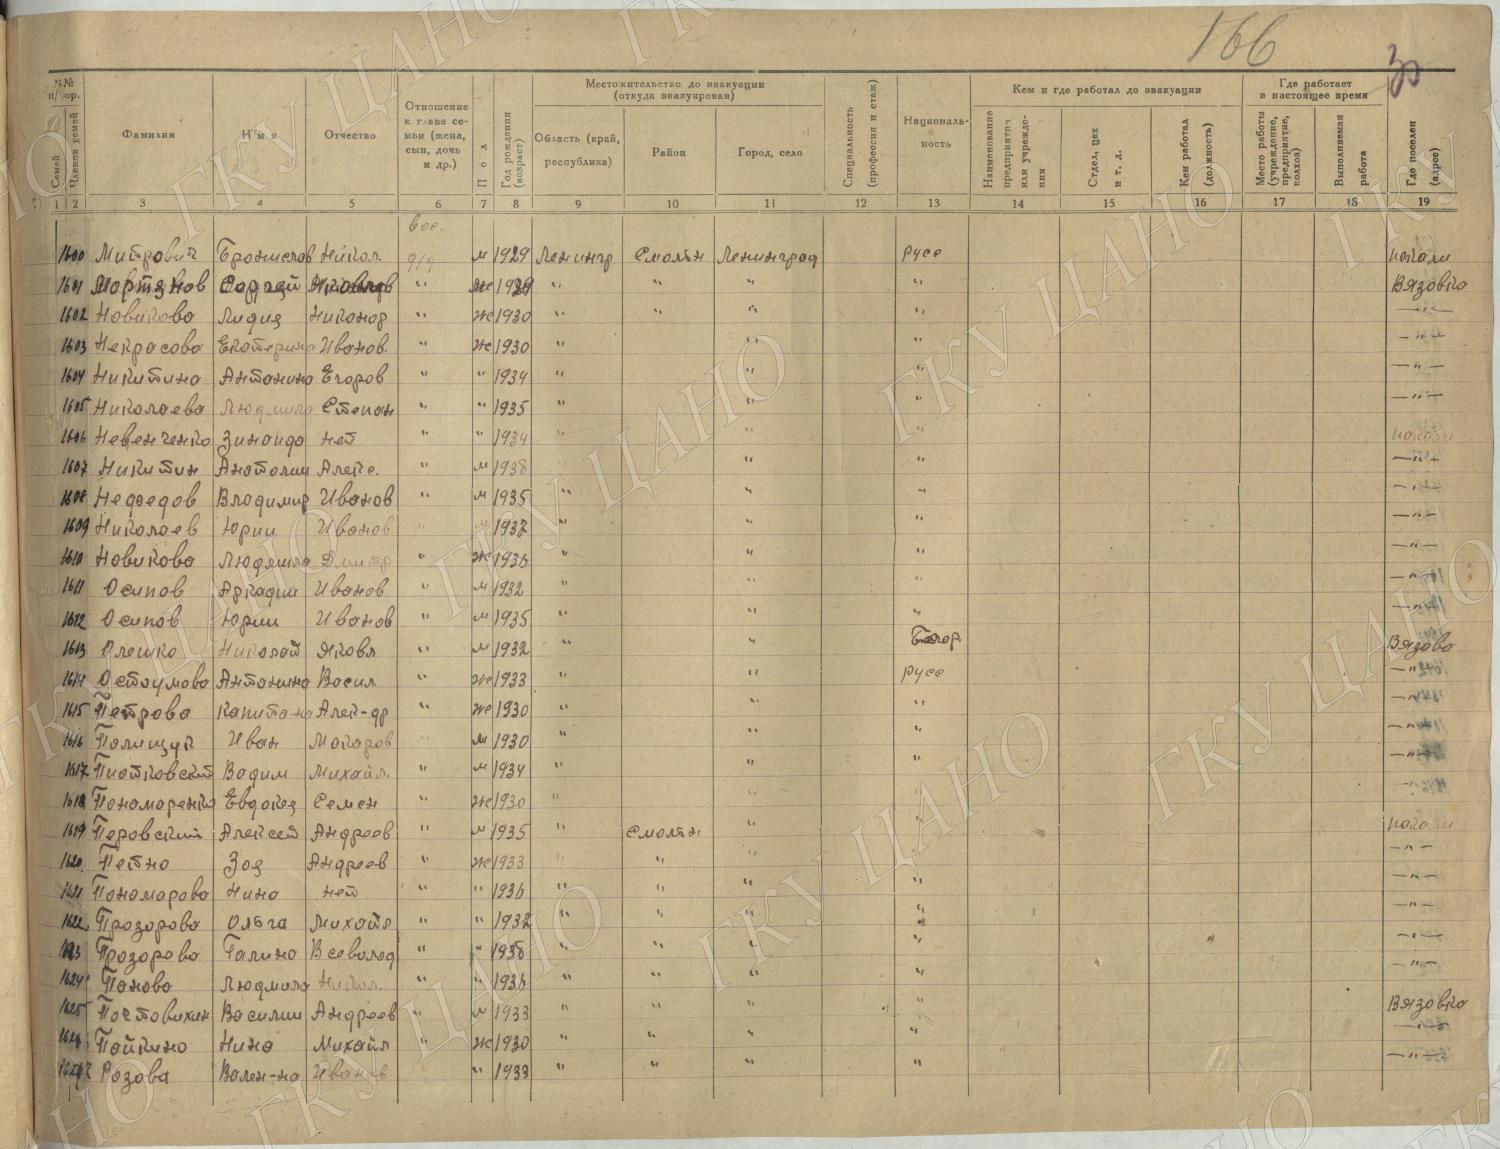 166
30
№№ п/пор.
Семей
Членов семей
Фамилия
Имя
Отчество
Отношение к главе семьи (жена, сын, дочь и др.)
Пол
Год рождения (возраст)
Местожительство до эвакуации (откуда эвакуирован)
Область (край, республика)
Район
Город, село
Специальность (профессия и стаж)
Националь-ность
Кем и где работал до эвакуации
Наименование предприятия или учреждения
Отдел, цех и т. д.
Кем работал (должность)
Где работает в настоящее время
Место работы (учреждение, предприятие, колхоз)
Выполняемая работа
Где поселен (адрес)
1 2 3 4 5 6 7 8 9 10 11 12 13 14 15 16 17 18 19
вос.
1600 Митрович Бронислав Никол. д/д м 1929 Ленингр Смольн Ленинград русс
1601 Мортянов Сергей " 19 " " " " Вязовка
1602 Новикова Лидия Никонор " ж 1930 " " " " —"—
1603 Некрасова Екатерина Иванов. " ж 1930 " " " —"—
1604 Никитина Антонина Егоров " " 1934 " " " —"—
1605 Николаева Людмила Степан " " 1935 " " " —"—
1606 Невенченко Зинаида нет " " 1934 " " "
1607 Никитин Анатолий Алекс. " м 1938 " " —"—
1608 Недведов Владимир Иванов " м 1935 " " " —"—
1609 Николаев Юрий Иванов " м 1937 " " " —"—
1610 Новикова Людмила Дмитр " ж 1936 " " " —"—
1611 Осипов Аркадий Иванов " м 1932 " " " —"—
1612 Осипов Юрий Иванов " м 1935 " " " —"—
1613 Олешко Николай Яковл " м 1932 " " Вязова
1614 Остоумова Антонина Васил " ж 1933 " " русс —"—
1615 Петрова Капитона Алек-др " ж 1930 " " " —"—
1616 Полищук Иван Макаров " м 1930 " " " —"—
1617 Пиотковский Вадим Михайл. " м 1934 " " " —"—
1618 Пономаренко Евдокия Семен " ж 1930 " " " —"—
1619 Перовский Алексей Андреев " м 1935 " Смольн " "
1620 Петно Зоя Андреев " ж 1933 " " " " —"—
1621 Пономарова Нина нет " " 1936 " " " " —"—
1622 Прозорова Ольга Михайл " " 1932 " " " " —"—
1623 Прозорова Галина Всеволод " " 1938 " " " " —"—
1624 Панова Людмила Никол. " " 1936 " " " " —"—
1625 Постовихин Василий Андреев " м 1933 " " " " Вязовка
1626 Пайкина Нина Михайл " ж 1930 " " " " —"—
1627 Розова Вален-на Иванов " " 1933 " " " " —"—
ГКУ ЦАНО